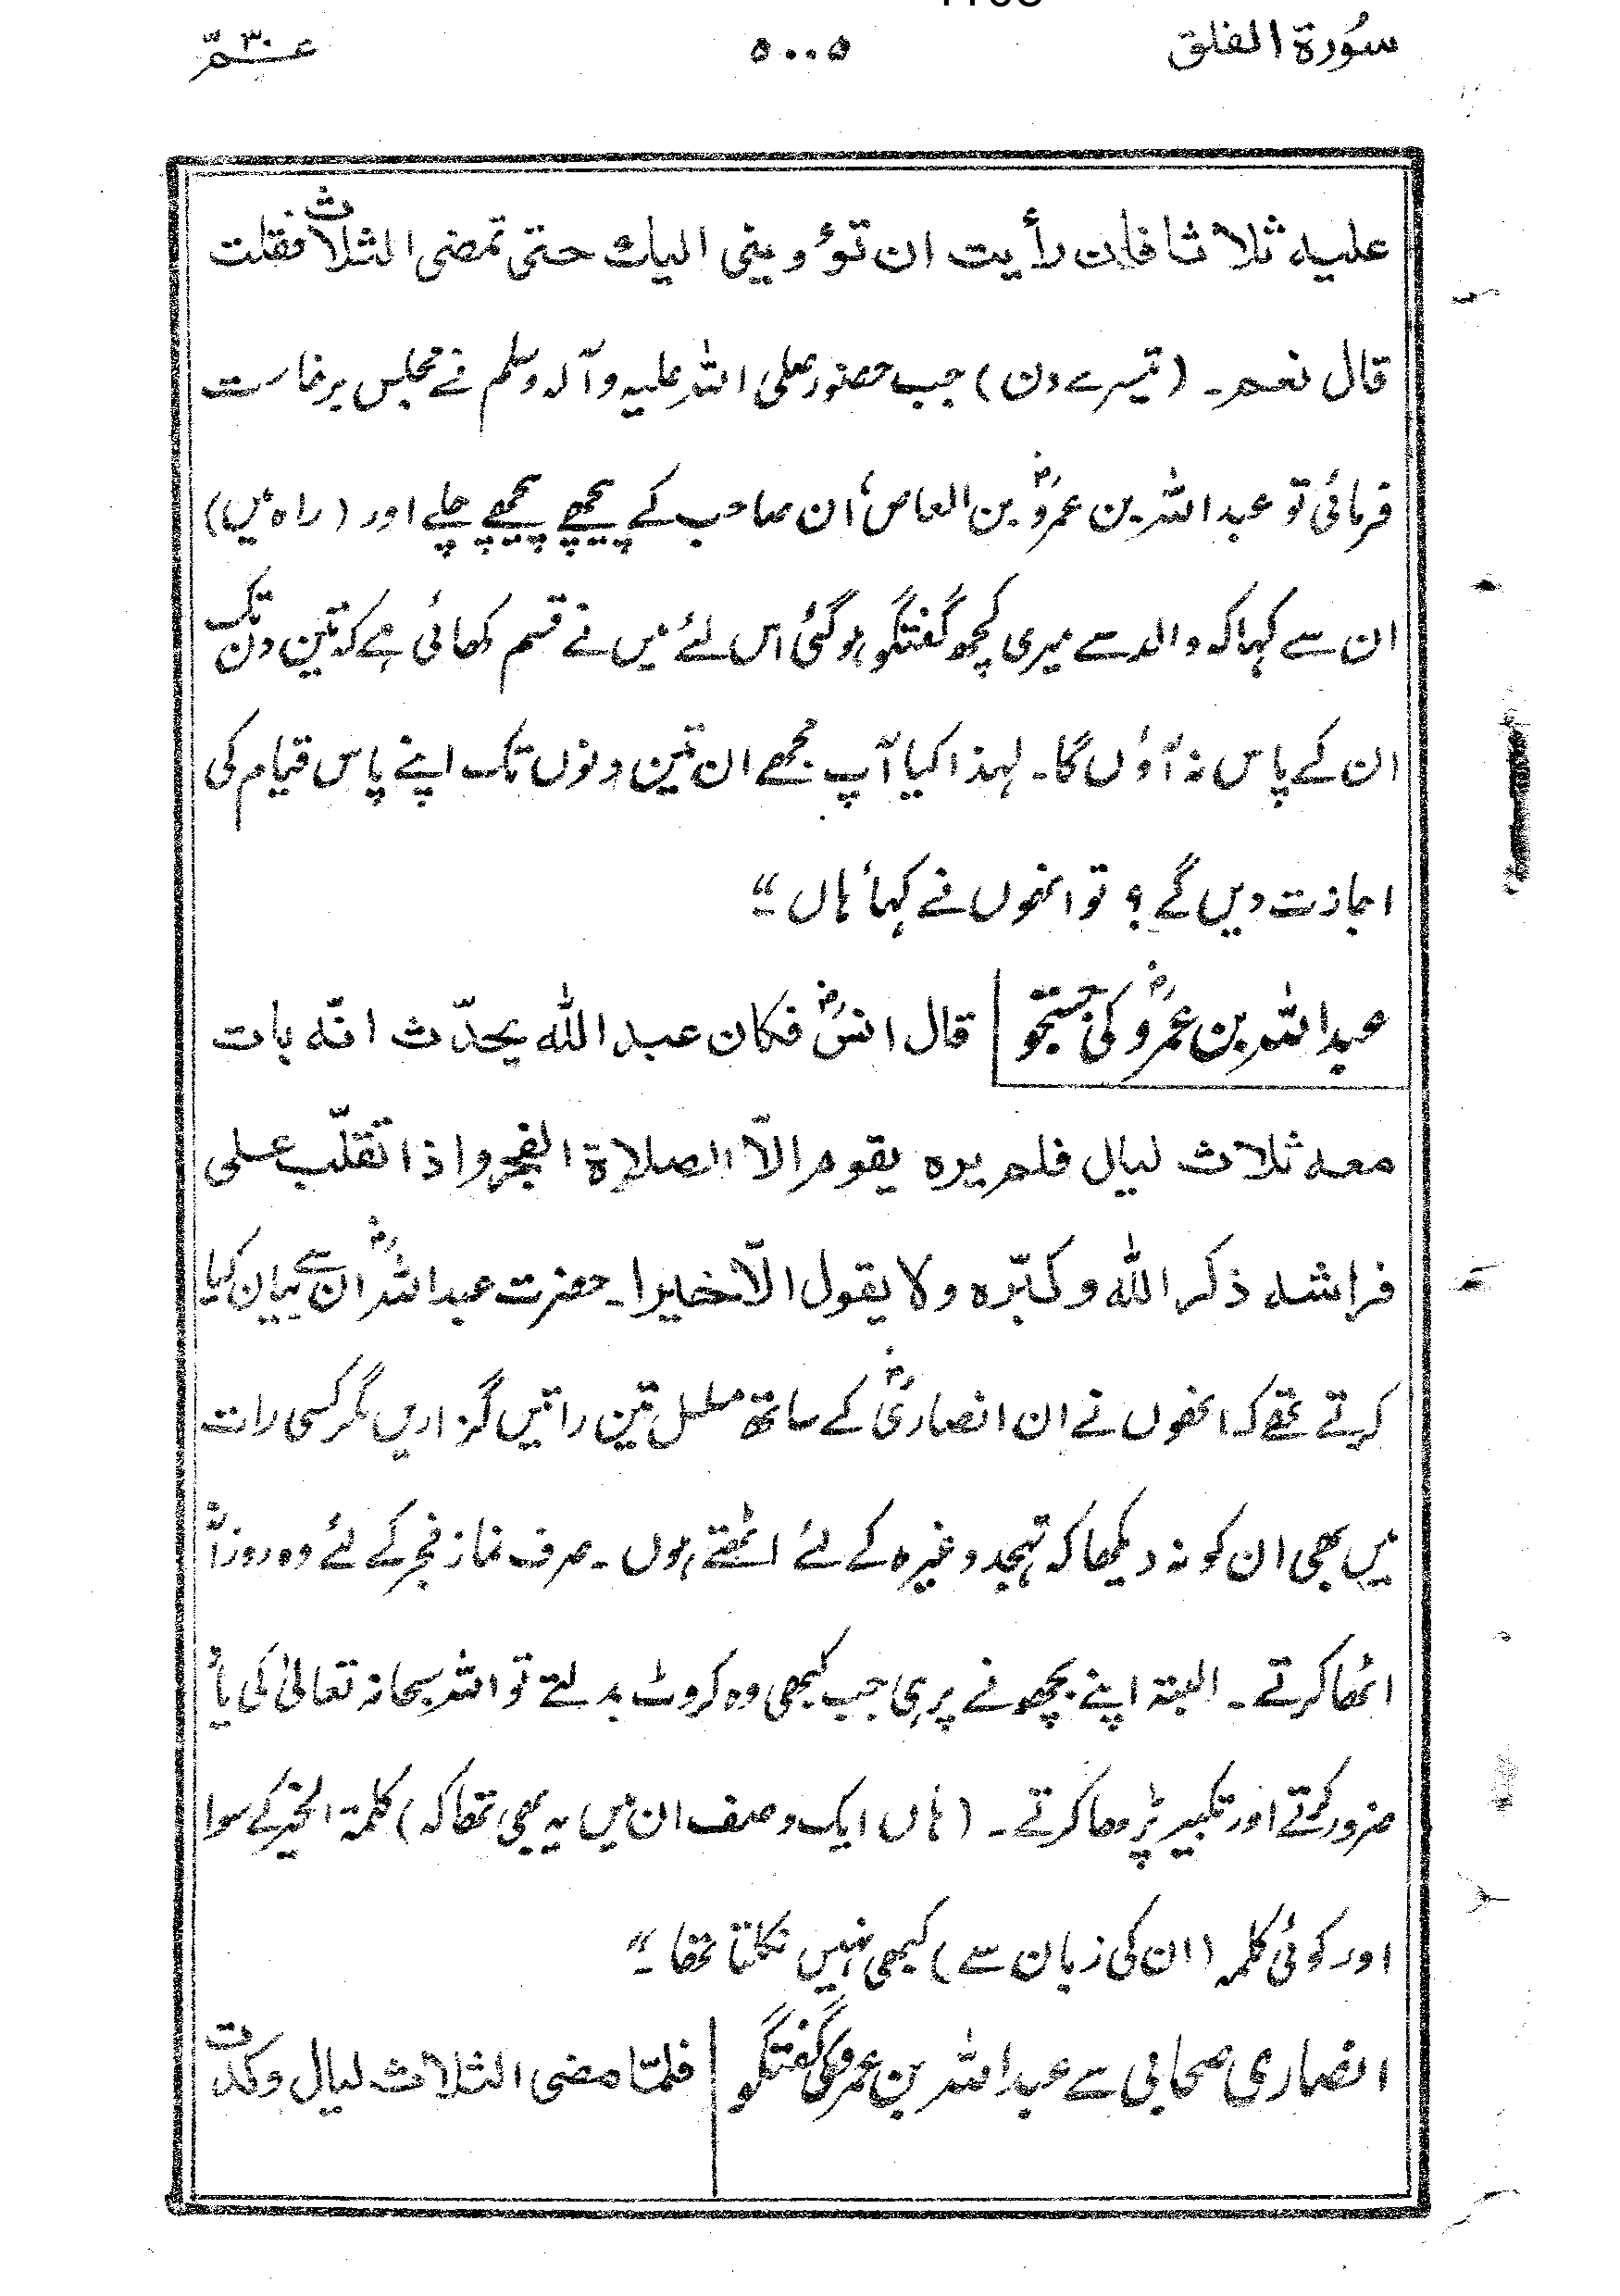 سُورة الفلق ۵۰۰۵ عـمّ ۳۰
علیہ ثلاثا فان رأیت ان تؤوینی الیك حتی تمضی الثلاث فقلت
قال نعم۔ (تیسرے دن) جب حضور صلی اللہ علیہ وآلہ وسلم نے مجلس برخاست
فرمائی تو عبد اللہ بن عمروؓ بن العاص، ان صاحب کے پیچھے پیچھے چلے اور (راہ میں)
ان سے کہا کہ والد سے میری کچھ گفتگو ہوگئی اس لئے میں نے قسم کھائی ہے کہ تین دن تک
ان کے پاس نہ آؤں گا۔ لہذا کیا آپ مجھے ان تین دنوں تک اپنے پاس قیام کی
اجازت دیں گے؟ تو انھوں نے کہا ہاں ۔“
عبد اللہ بن عمروؓ کی جستجو قال انسؓ فکان عبد اللّٰہ یحدّث انّہ بات
معہ ثلاث لیال فلم یرہ یقوم الّا الصلاۃ الفجر واذا تقلّب علی
فراشہ ذکر اللّٰہ وکبّرہ ولا یقول الّا خیرا۔ حضرت عبد اللہؓ ان سے بیان کیا
کرتے تھے کہ انھوں نے ان انصاریؓ کے ساتھ مسلسل تین راتیں گزاریں مگر کسی رات
میں بھی ان کو نہ دیکھا کہ تہجد وغیرہ کے لئے اٹھتے ہوں۔ صرف نماز فجر کے لئے وہ روزانہ
اٹھا کرتے۔ البتہ اپنے بچھونے پر ہی جب کبھی وہ کروٹ بدلتے تو اللہ سبحانہ تعالیٰ کی یاد
ضرور کرتے اور تکبیر پڑھا کرتے۔ (ہاں ایک وصف ان میں یہ بھی تھا کہ) کلمۃ الخیر کے سوا
اور کوئی کلمہ (ان کی زبان سے) کبھی نہیں نکلتا تھا ۔“
انصاری صحابی سے عبد اللہ بن عمرو کی گفتگو فلمّا مضی الثلاث لیال وکدت